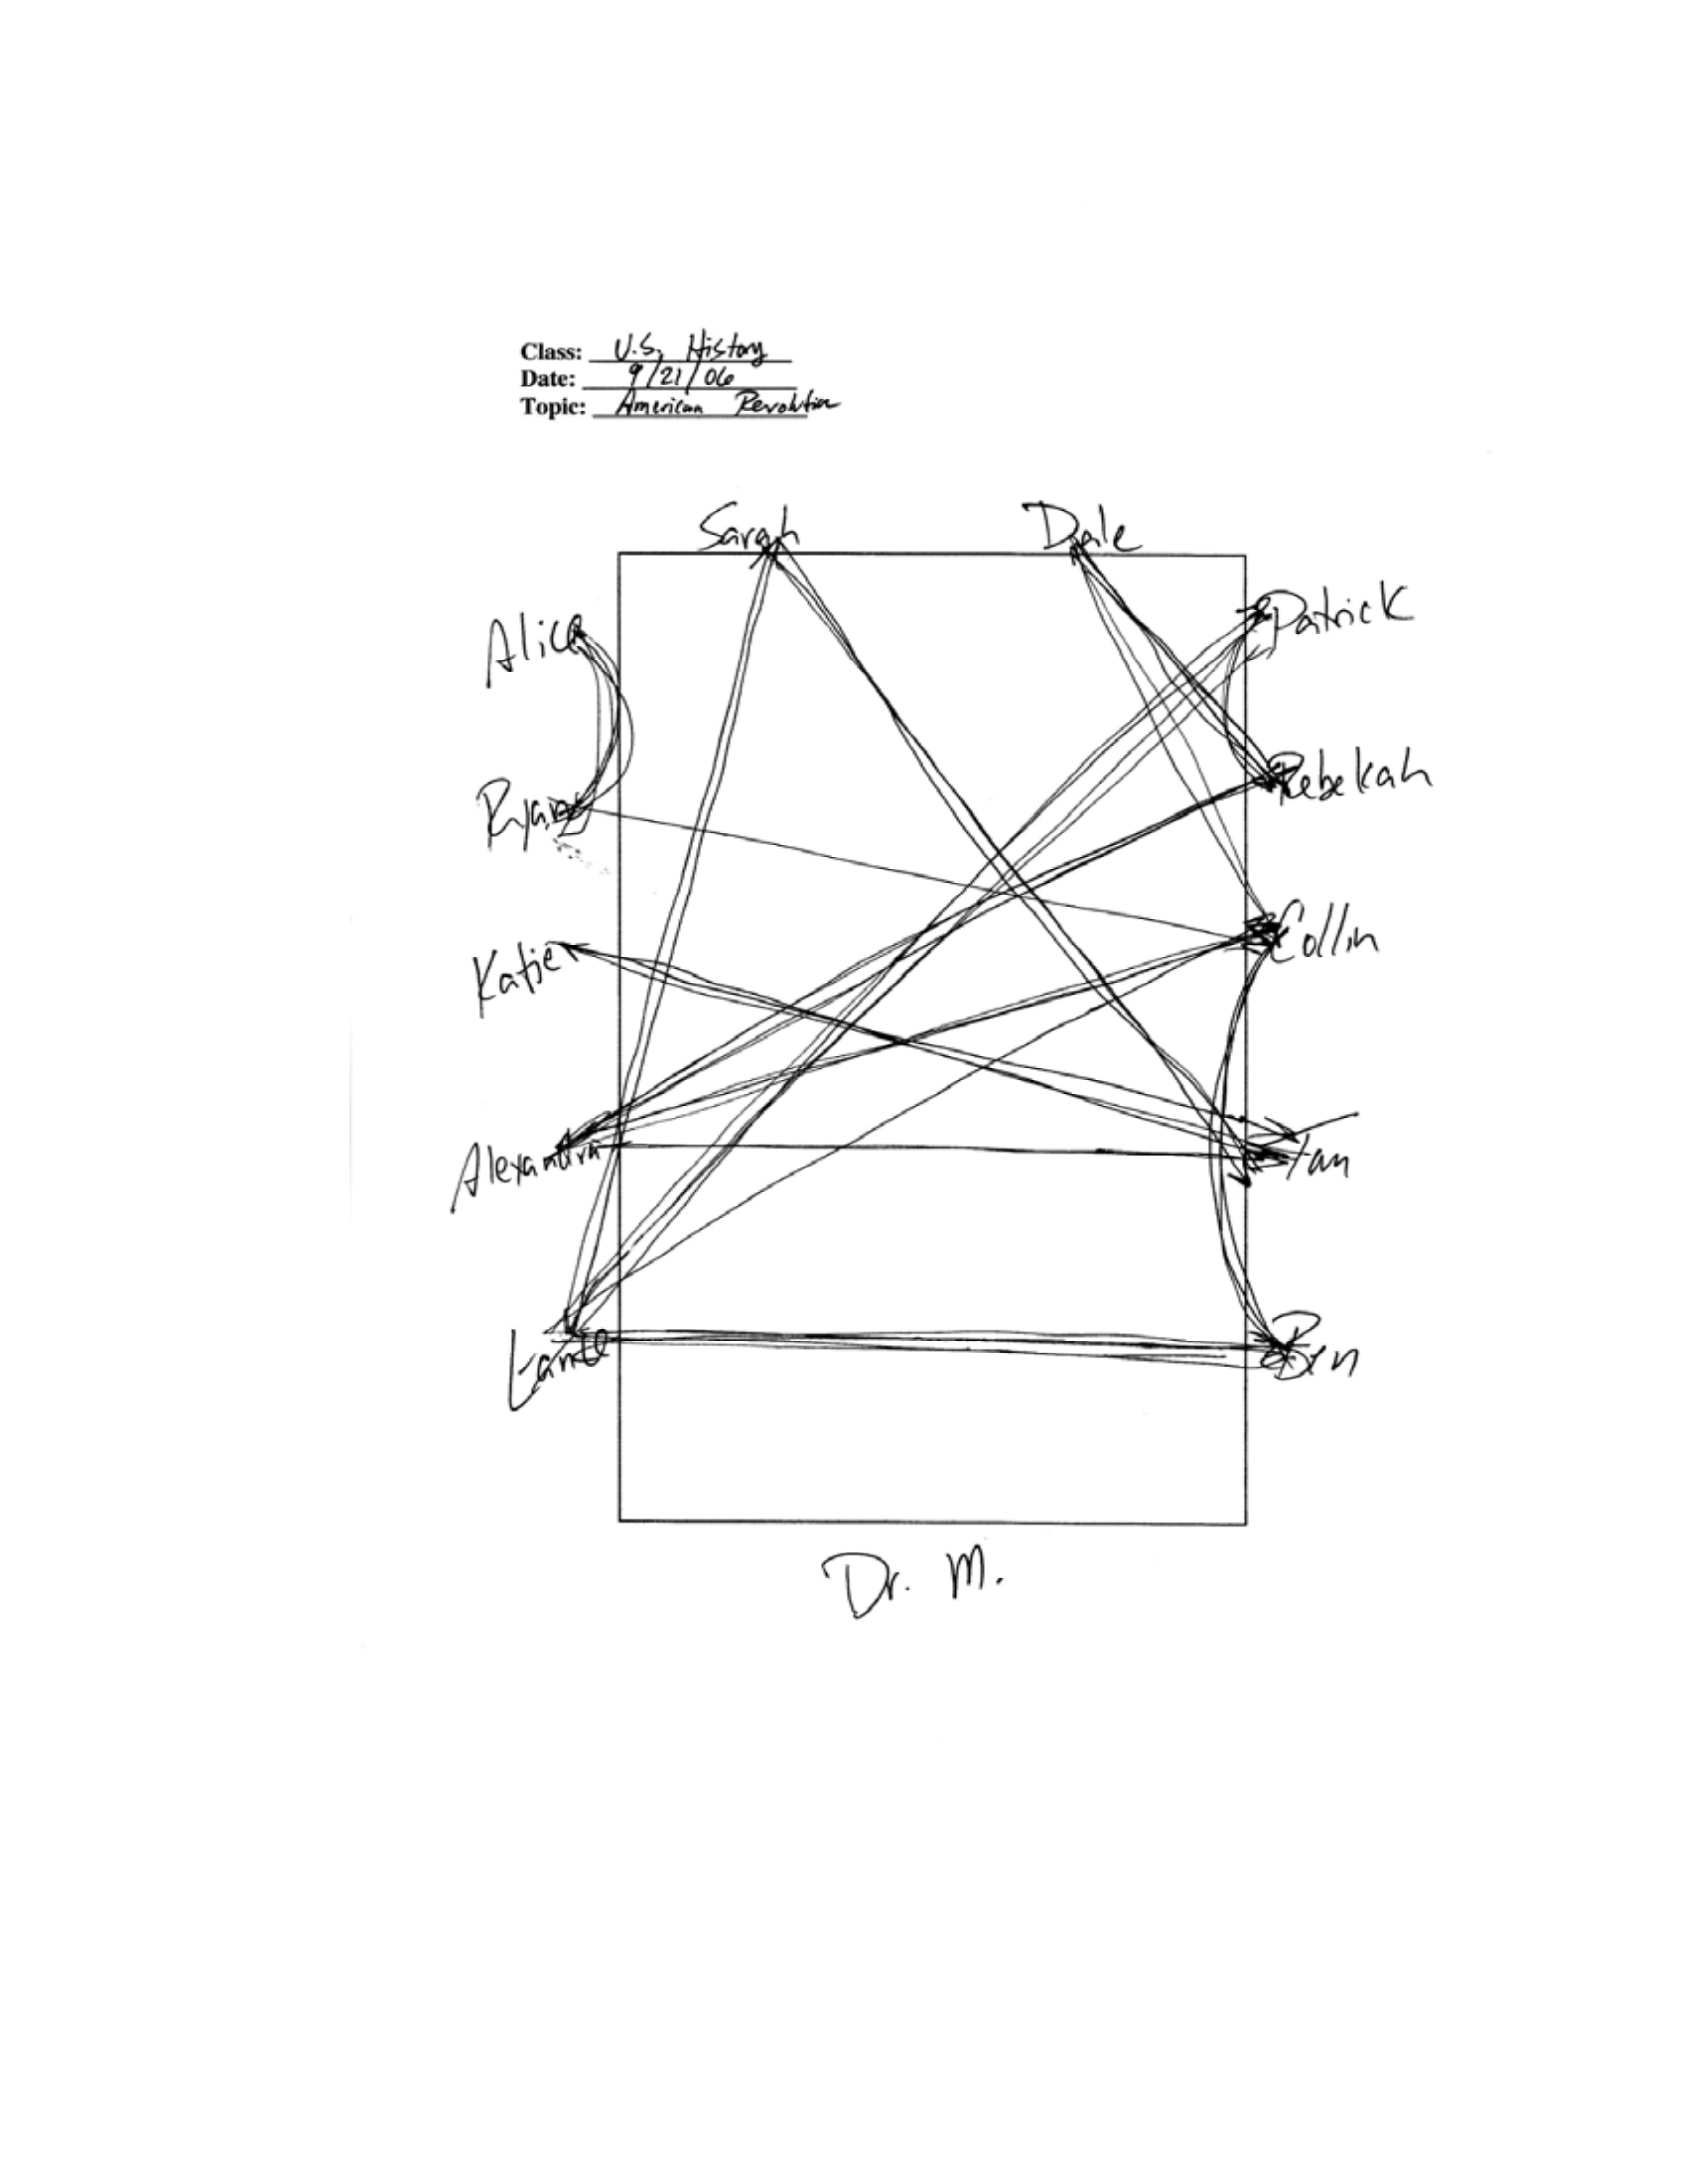 Class: U.S. History
Date: 9/21/06
Topic: American Revolution
Sarah Dale
Alice Patrick
Ryan Rebekah
Katie Collin
Alexandra Ian
Ben
Dr. M.